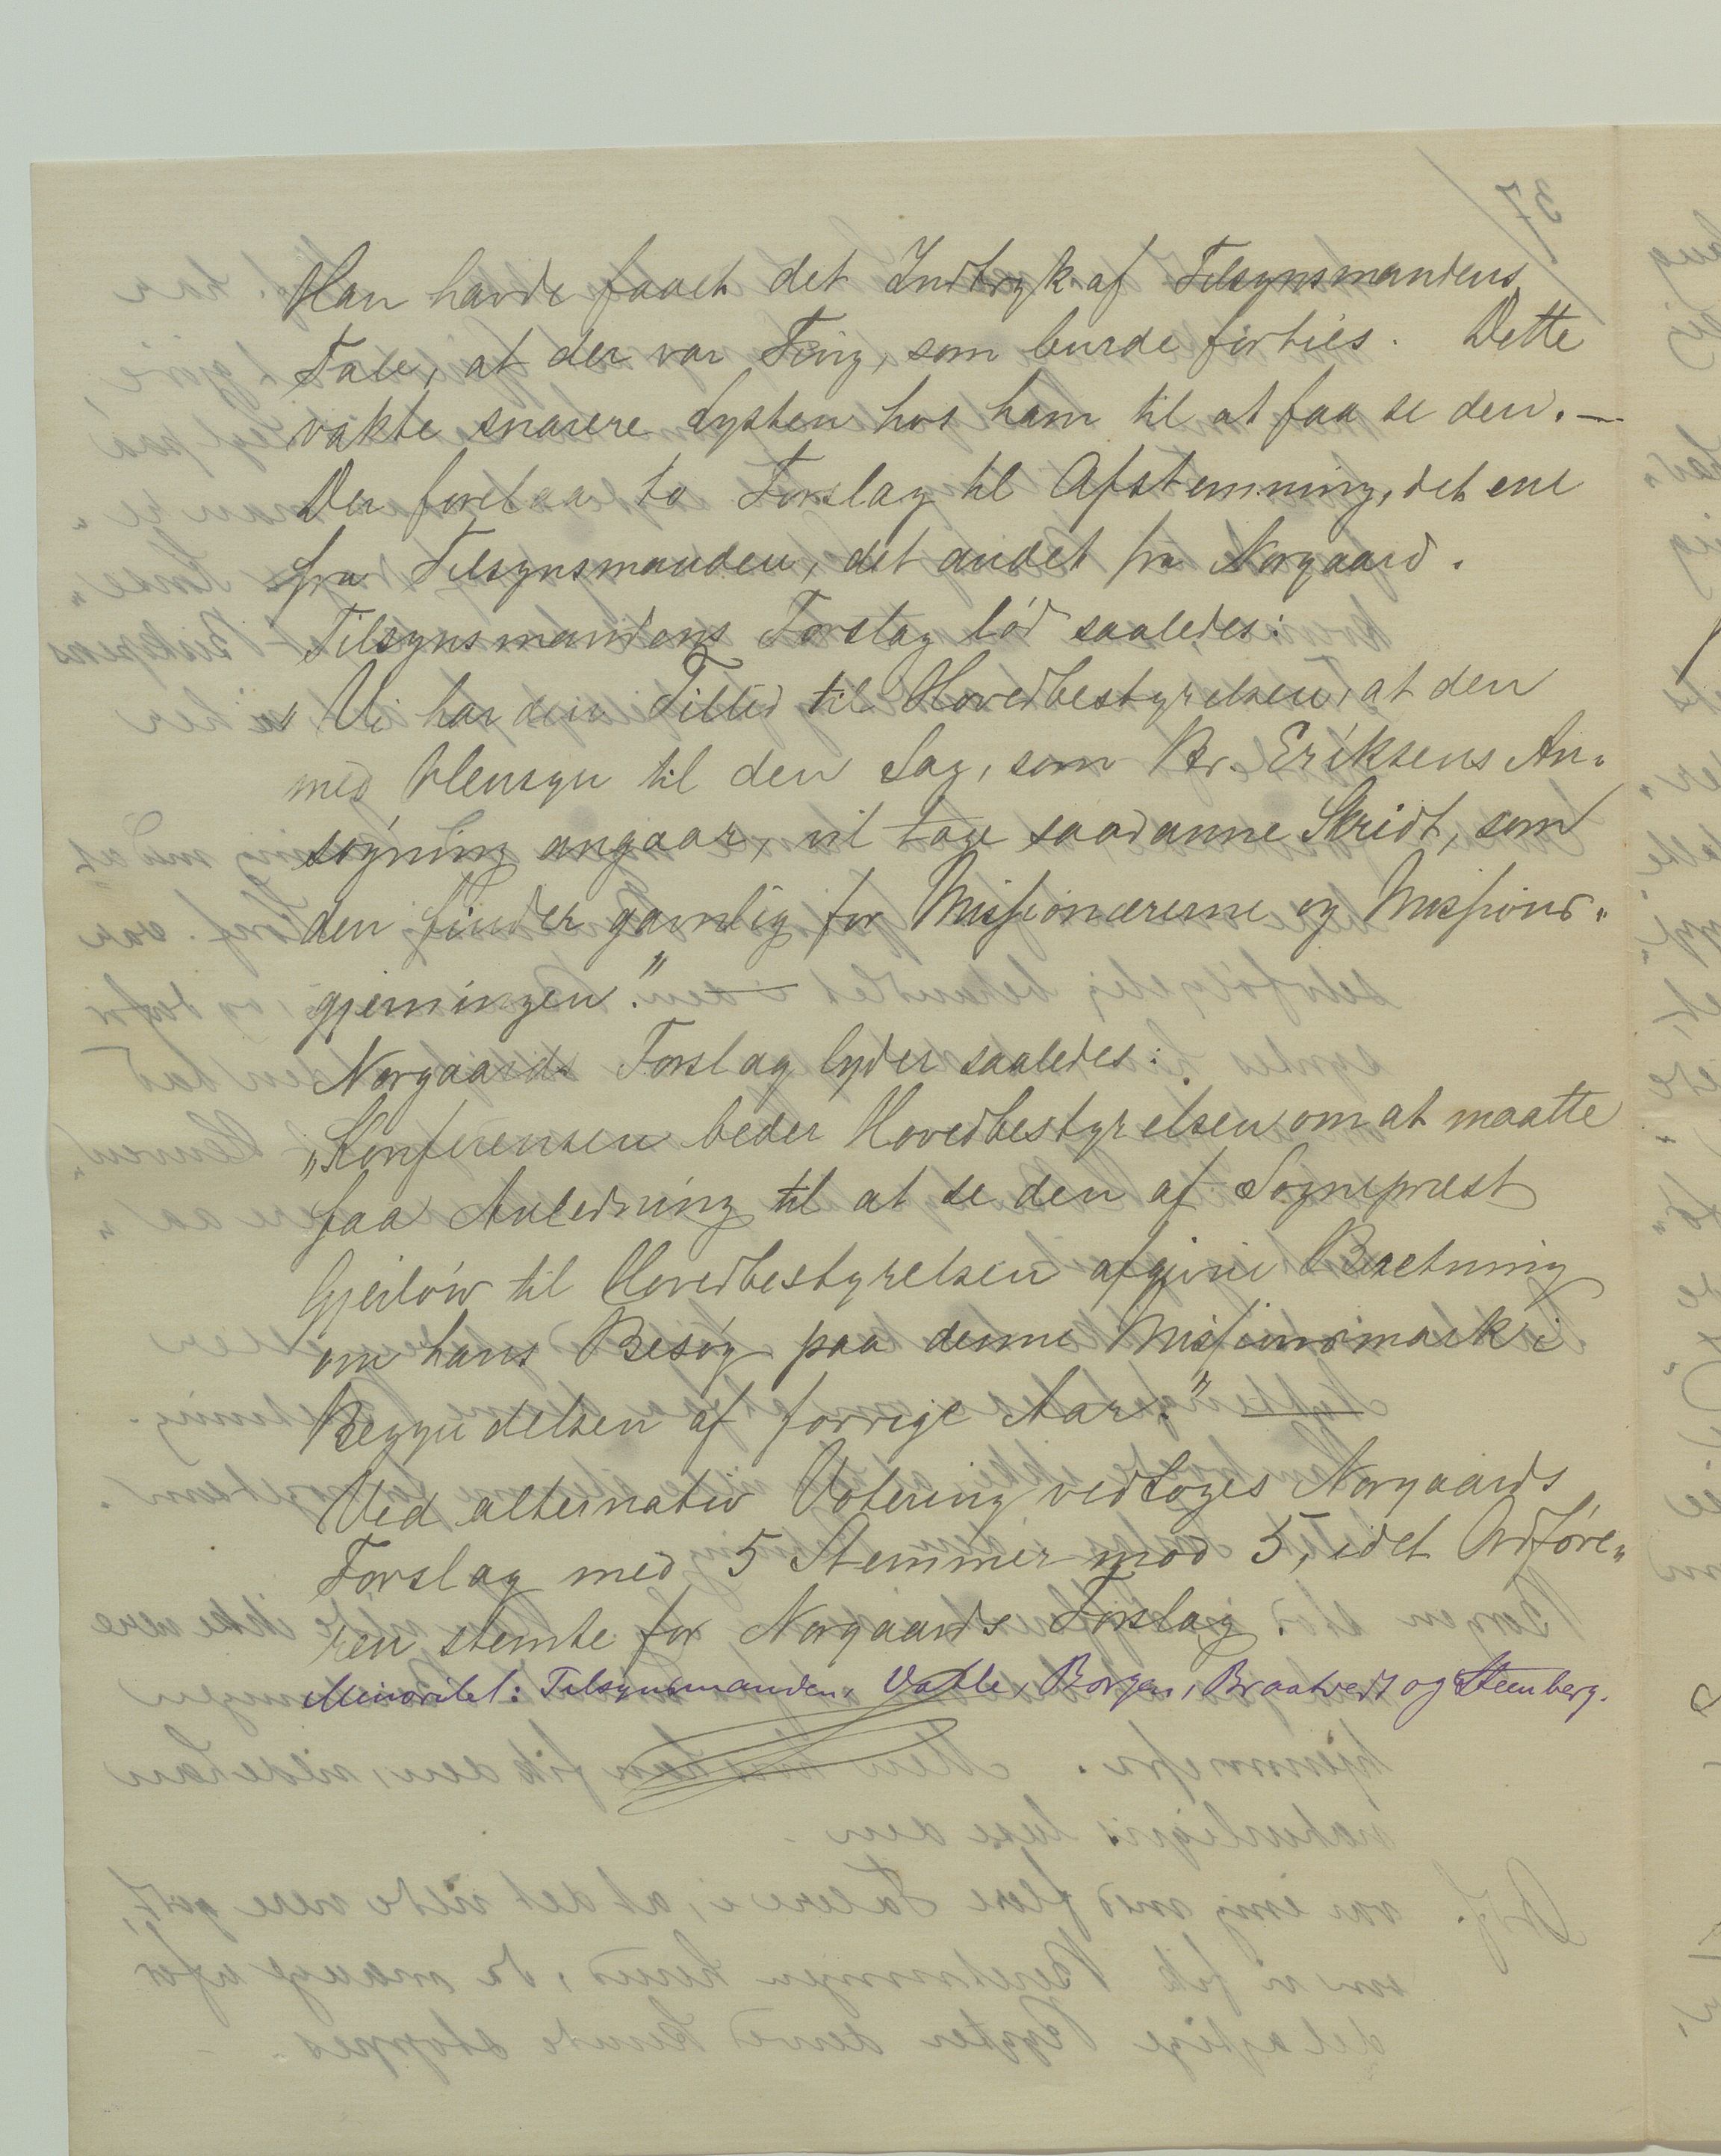 Han havde faaet det Indtryk af Tilsynsmandens
Tale, at der var Ting, som burde forties. Dette
vakte snarere Lysten hos ham til at faa se den. —
Der forelaa to Forslag til Afstemning, det ene
fra Tilsynsmanden, det andet fra Norgaard.
Tilsynsmandens Forslag lød saaledes:
"Vi har den Tillid til Hovedbestyrelsen, at den
med Hensyn til den Sag, som Br. Eriksens An-
søgning angaar, vil tage saadanne Skridt, som
den finder gavnlig for Missionærerne og Missions-
gjerningen." —
Norgaards Forslag lyder saaledes:
"Konferensen beder Hovedbestyrelsen om at maatte
faa Anledning til at se den af Sogneprest
Gjerløw til Hovedbestyrelsen afgivne Beretning
om hans Besøg paa denne Missionsmark i
Begyndelsen af forrige Aar." —
Ved alternativ Votering vedtoges Norgaards
Forslag med 5 Stemmer mod 5, idet Ordføre-
ren stemte for Norgaards Forslag.
Minoritet: Tilsynsmanden, Valle, Borgen, Braatvedt og Steenberg.